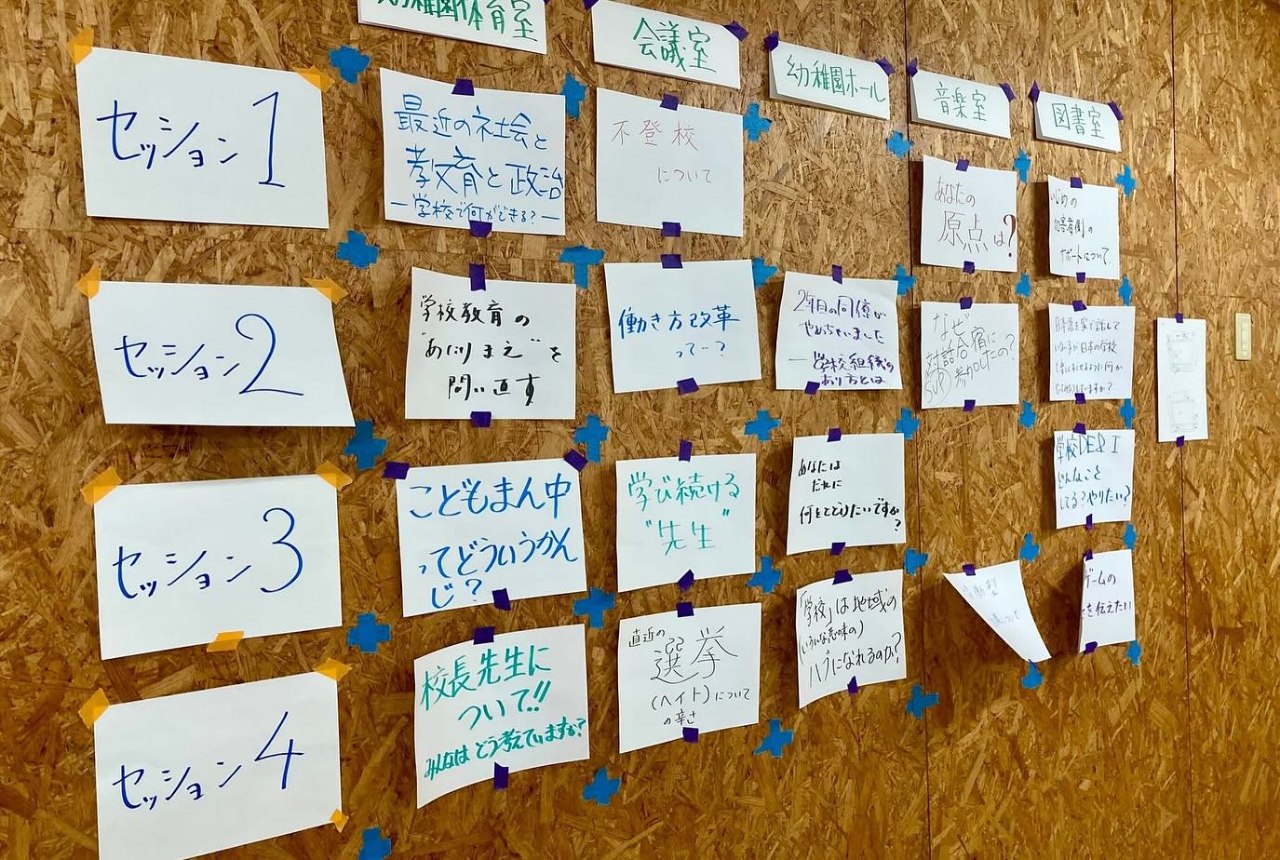 幼稚園体育室
会議室
幼稚園ホール
音楽室
図書室
セッション1
最近の社会と
教育と政治
―学校で何ができる?―
不登校
について
あなたの
原点は?
いじめの
加害者側の
サポートについて
セッション2
学校教育の
"あたりまえ"を
問い直す
働き方改革
って…?
2年目の同僚が
やめちゃいました
―学校組織の
あり方とは
なぜ
対話合宿に
参加したの?
日本語を
学校
セッション3
こどもまん中
ってどういうかん
じ?
学び続ける
"先生"
あなたは
だれに
何をとどけたいですか?
学校DE&I
どんなこと
してる?やりたい?
セッション4
校長先生に
ついて!!
みんなは どう考えていますか?
直近の
選挙
(ヘイト)について
の辛さ
「学校」は地域の
(いろんな意味の)
ハブになれるのか?
ゲームの
を伝えたい